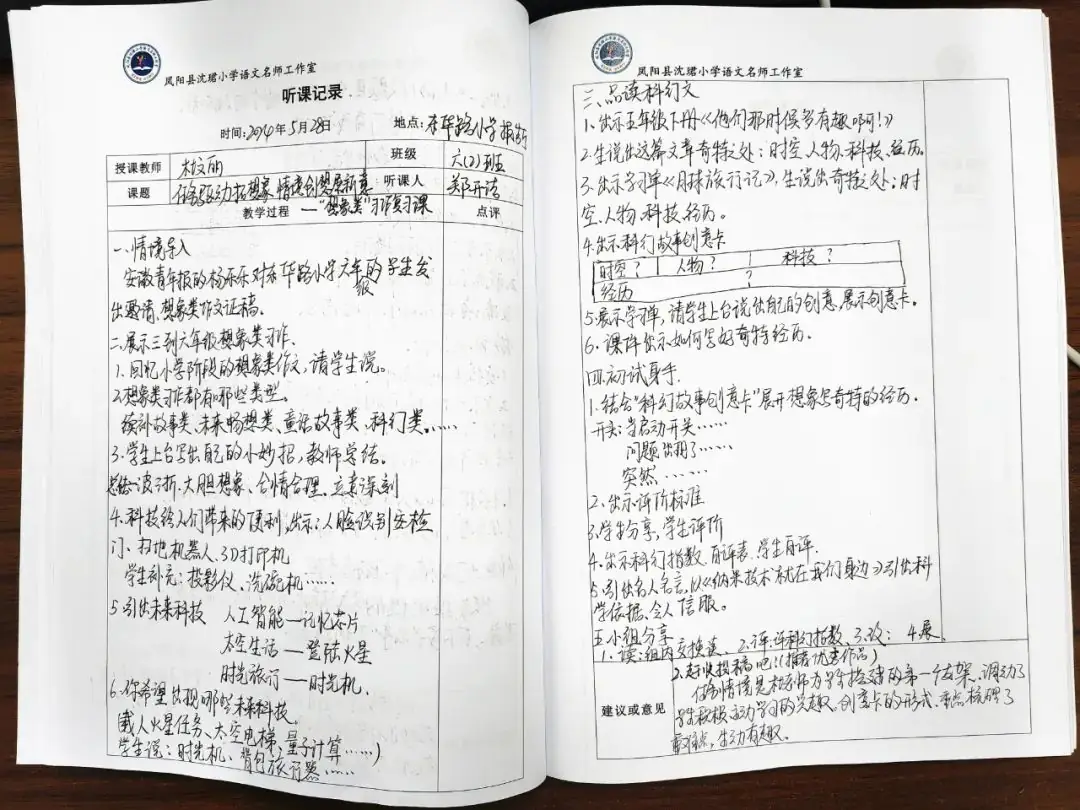 凤阳县沈珺小学语文名师工作室
听课记录
时间:2024年5月28日 地点:东华路小学报告厅
授课教师 林文丽 班级 六(2)班
课题 任务驱动拉想象 情境创想展新意 听课人 郑开洁
教学过程 —“想象类”习作复习课 点评
一、情境导入
安徽青年报的杨乐乐对东华路小学六年级的学生发
出邀请,想象类作文证稿.
二、展示三到六年级想象类习作.
1.回忆小学阶段的想象类作文,请学生说。
2.想象类习作都有哪些类型。
续补故事类、未来畅想类、童话故事类、科幻类。……
3.学生上台写出自己的小妙招,教师学结。
总结:一波三折、大胆想象、合情合理、立意深刻
4.科技给人们带来的便利,出示:人脸识别安检
门、扫地机器人、3D打印机
学生补充:投影仪、洗碗机……
5.引出未来科技 人工智能—记忆芯片
太空生活—登陆火星
时光旅行—时光机.
6.你希望出现哪些未来科技.
(载人火星任务、太空电梯,量子计算……)
学生说:时光机、背包旅行器……
凤阳县沈珺小学语文名师工作室
三、品读科幻文
1.出示五年级下册《他们那时候多有趣啊!》
2.生说出这篇文章奇特之处:时空、人物、科技、经历.
3.出示学习单《月球旅行记》,生说出奇特之处:时
空、人物、科技、经历。
4.出示科幻故事创意卡
时空? 人物? 科技?
经历 ?
5.展示学习单,请学生上台说出自己的创意,展示创意卡。
6.课件出示如何写好奇特经历.
四.初试身手.
1.结合“科幻故事创意卡”展开想象写奇特的经历.
开头:当启动开关……
问题出现了……
突然……
2.出示评价标准
3.学生分享,学生评价
4.出示科幻指数,自评表.学生自评.
5.引出名人名言,以《纳米技术就在我们身边》引出科
学依据、令人信服。
五、小组分享
1.读:组内交换读 2.评:评科幻指数 3.改: 4.展.
2.好收投稿吧!(推荐优秀作品)
建议或意见
任务情境是林老师为学生搭建的第一个支架,调动了
学生积极主动学习的兴趣,创意卡的形式,重点梳理了
重难点,生动有趣。